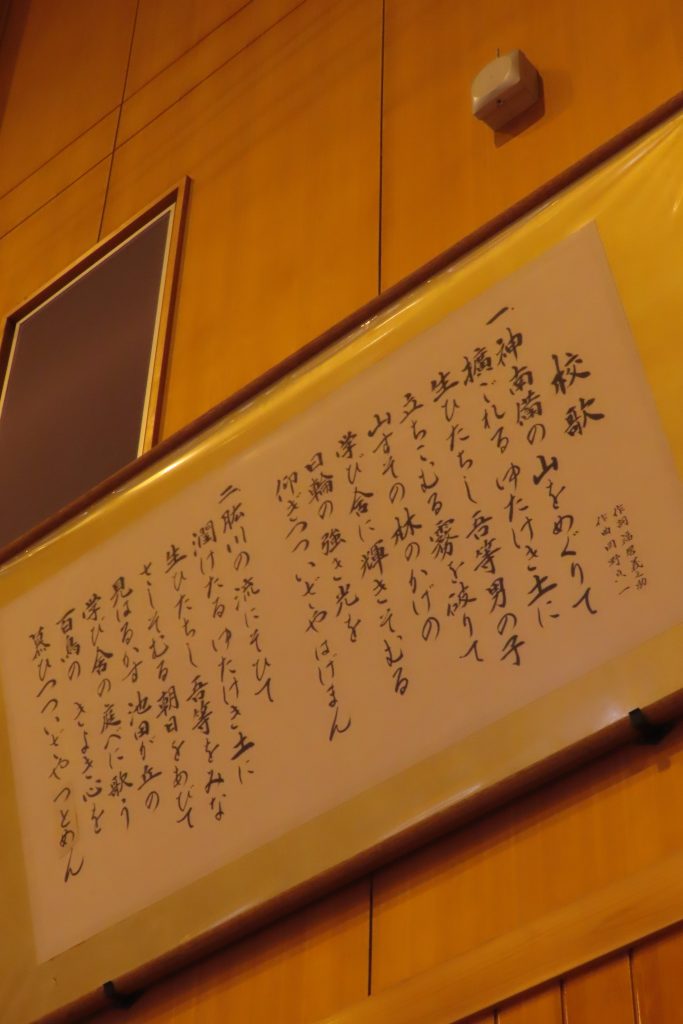 校歌
作詞
作曲
一、神南備の山をめぐりて
擴ごれるゆたけき土に
生ひたちし吾等男の子
立ちこむる霧を破りて
山すその林のかげの
学び舎に輝きそむる
日輪の強き光を
仰ぎつついざやはげまん
二、肱川の流にそひて
潤けたるゆたけき土に
生ひたちし吾等をみな
さしそむる朝日をあびて
見はるかす池田が丘の
学び舎の庭べに歌う
百鳥のきよき心を
慕ひつついざやつとめん